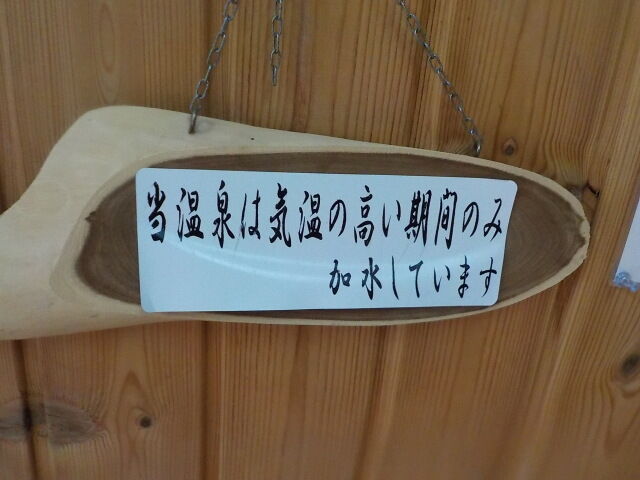 当温泉は気温の高い期間のみ
加水しています